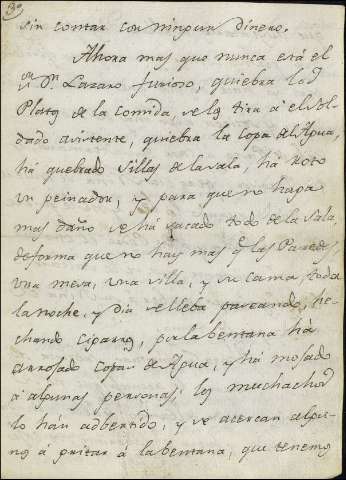 sin contar con ningun dinero.
Ahora mas que nunca está el
Sr. Dn. Lazaro furioso, quiebra los
Platos de la comida, se los tira à el Sol-
dado asistente, quiebra la Copa del Agua,
há quebrado Sillas de la sala, há roto
un peinador, y para que no haga
mas daño se há sacado todo de la Sala,
de forma que no hay mas q.e las Paredes,
una mesa, una silla, y su cama, toda
la noche, y Dia se lleba paseando, he-
chando Cigarros, por la bentana há
arrojado Copas de Agua, y há mojado
á algunas personas, los muchachos
lo hán adbertido, y se acercan algu-
nos á gritar á la bentana, que tenemos